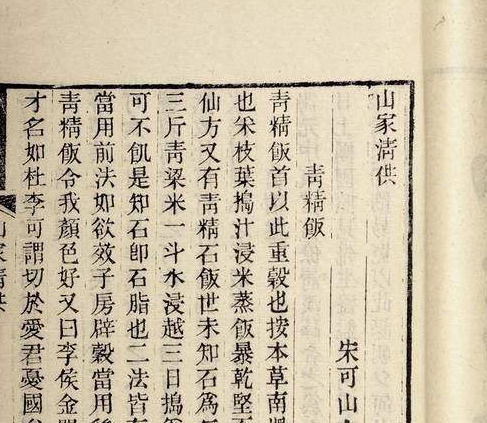 山家清供
宋可山
青精飯
青精飯首以此重穀也按本草南
也采枝葉搗汁浸米蒸飯暴乾堅
仙方又有青精石飯世未知石為
三斤青粱米一斗水浸越三日搗
可不飢是知石卽石脂也二法皆
當用前法如欲效子房辟穀當用
青精飯令我顏色好又曰李侯金
才名如杜李可謂切於愛君憂國
山家清供